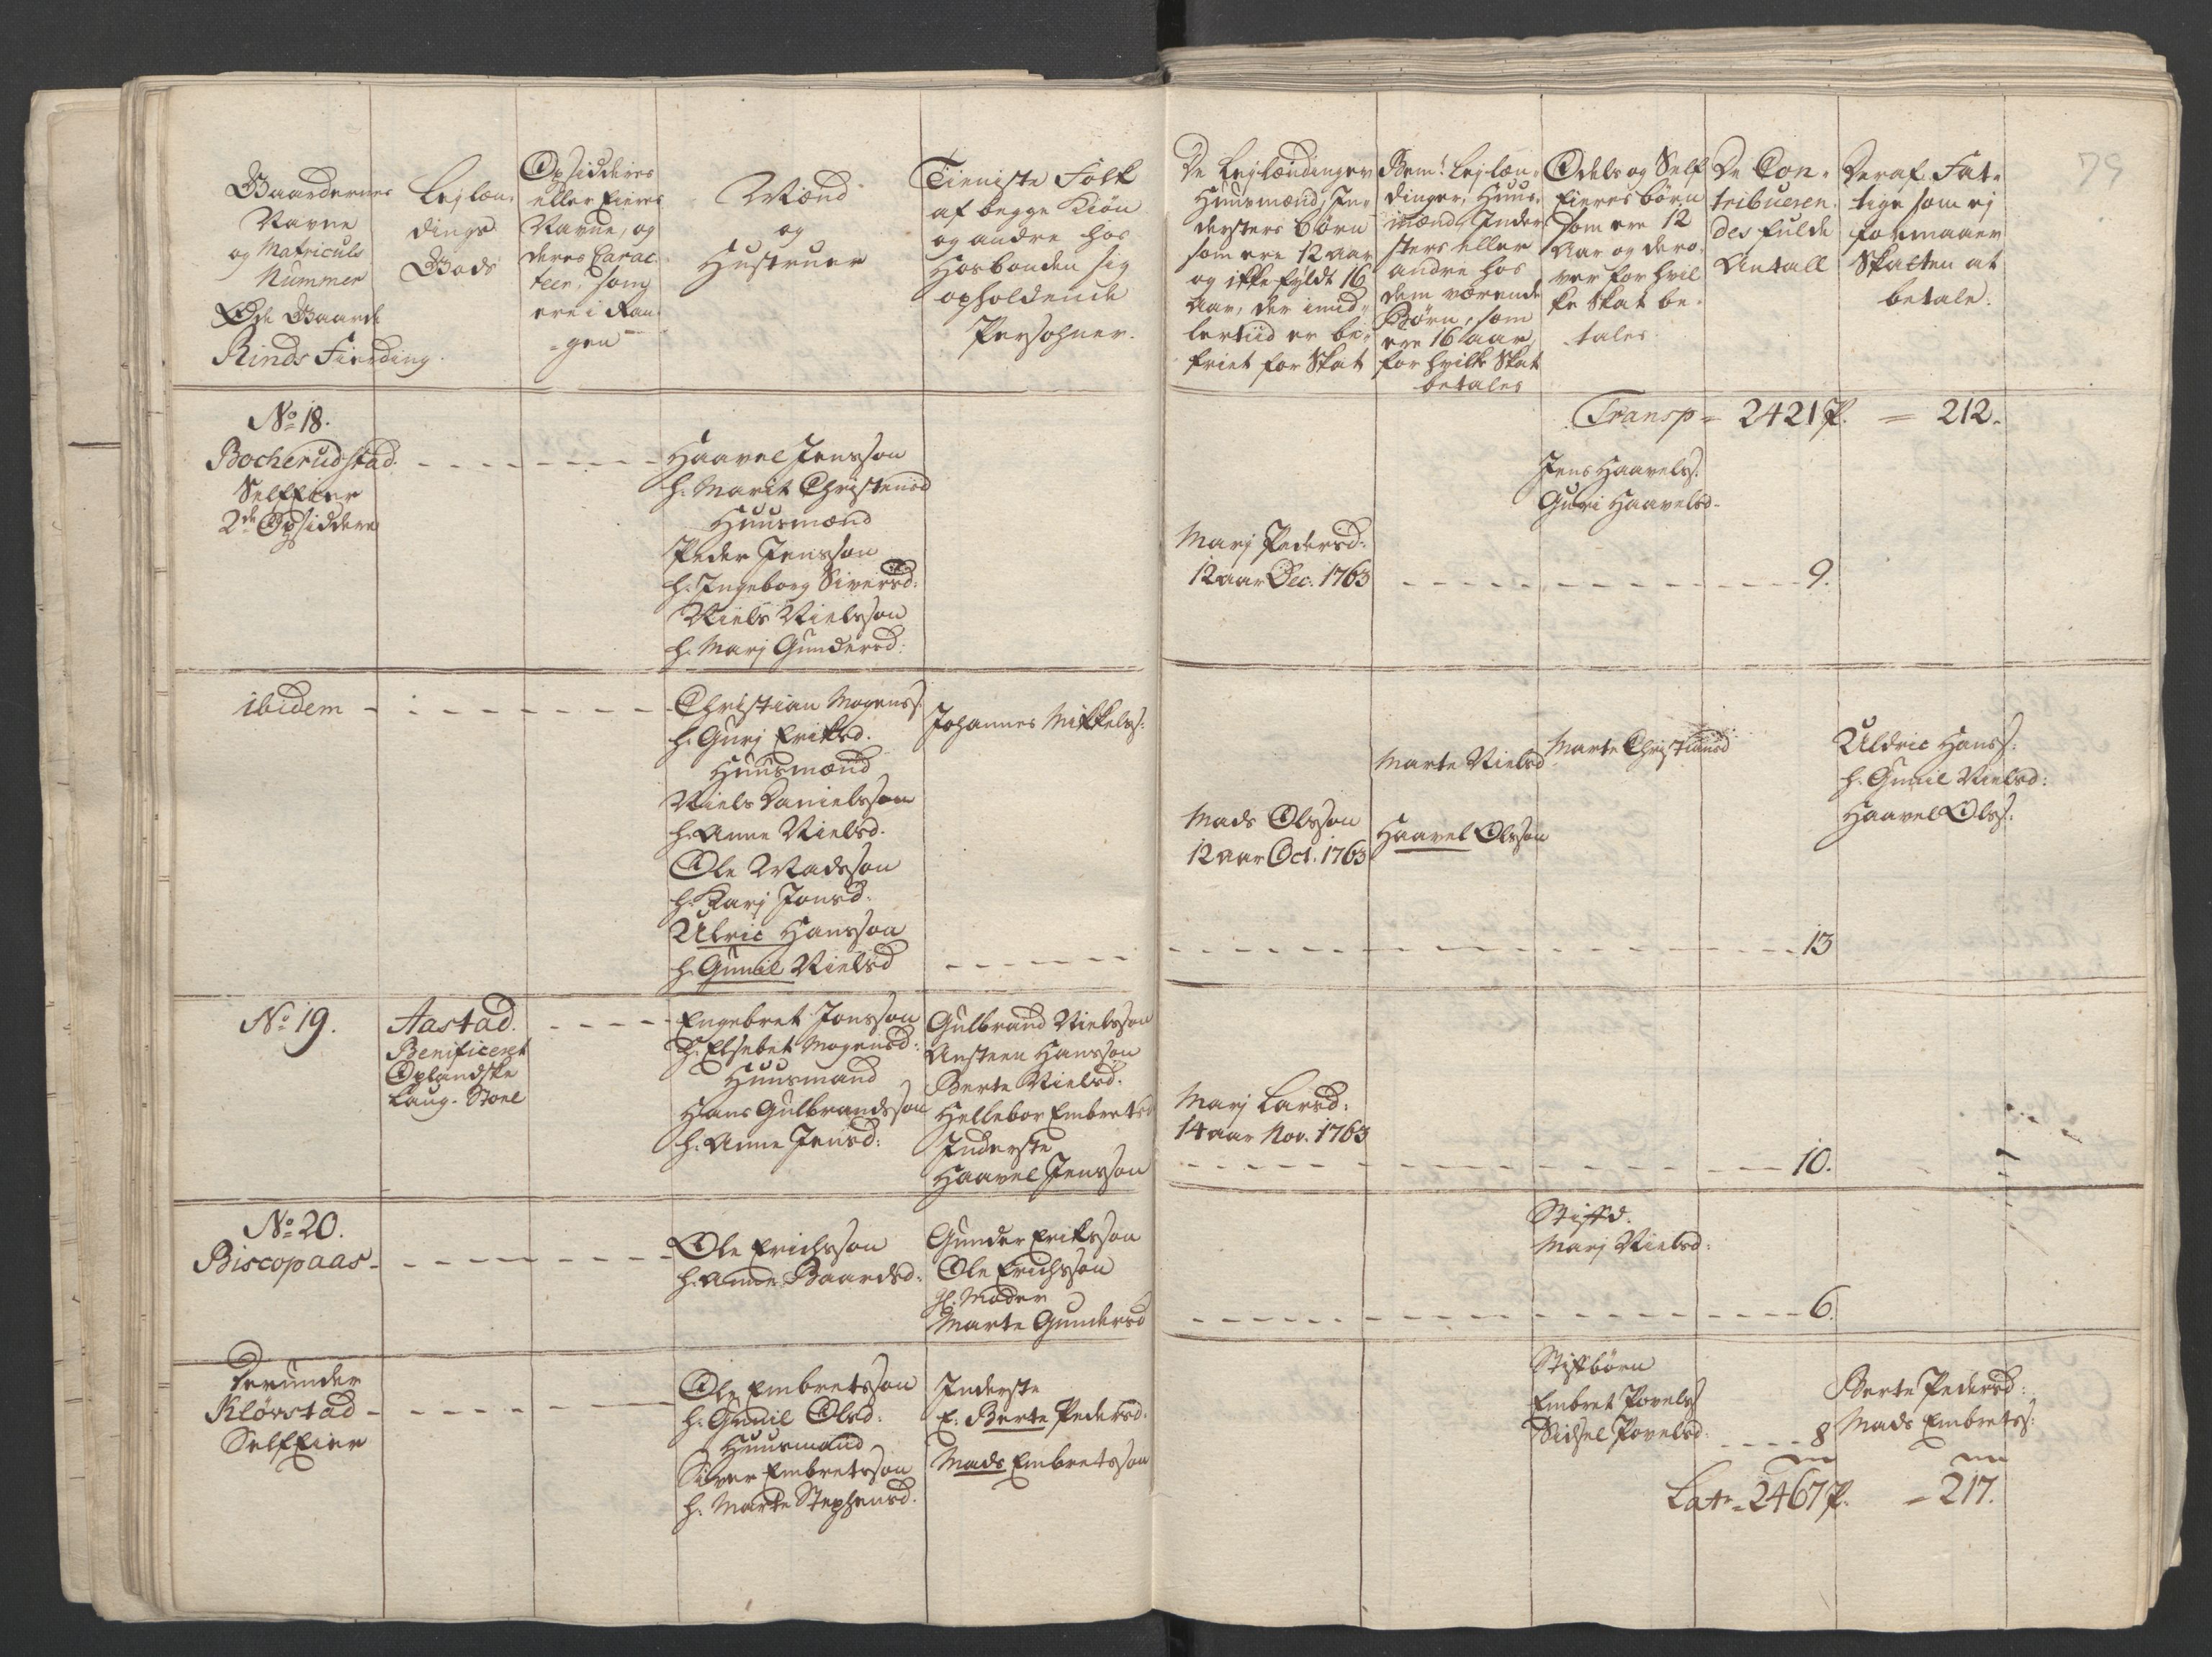 Gaardernes
Navne
og Matriculs
Nummer
Øde Gaarde
Rinds Fierding.
Lejlæn-
dings
Gods
Opsidderes
eller Eieres
Navne, og
deres Carac
teer, som
ere i Ran
-gen
Mænd
og
Hustruer
Tieniste Folk
af begge Kiøn
og andre hos
Hosbonden sig
opholdende
Persohner.
De Lejlændinger
Huusmænd, In-
dersters børn
som ere 12 aar
og ikke fyldt 16
Aar, der imid-
lertiid er be-
friet for Skat
Bem: Lejlæn-
dinger, Huus-
mænd, Inder
sters eller
andre hos
dem værende
Børn, som
ere 16 aar,
for hvilke Skat
betales
Odels og Self
Eieres børn
som ere 12
Aar og dero-
ver for hvil
ke Skat be-
tales
De Con-
tribueren-
des fulde
Antall
Deraf Fat-
tige som ej
formaaer
Skatten at
betale.
79
Transp = 2421 P. = 212.
No 18.
Bocherudstad.
SelfEier
2de Opsiddere
Haavel Jensson
h. Marit Christensd
Huusmænd
Peder Jensson
h. Ingeborg Siversd:
Niels Nielsson
h. Marj Gundersd:
Marj Pedersd:
12 aar Dec. 1763
Jens Haavels:
Guri Haavelsd.
9.
ibidem
Christian Mogenss:
h. Gurj Eriksd.
Huusmænd
Niels Danielsson
h. Anne Nielsd.
Ole Madsson
h. Karj Jonsd:
Ulric Hansson
h. Gunil Nielsd
Johannes Mikkelss:
Mads Olsson
12 aar Oct. 1763
Marte Nielsd
Haavel Olsson
Marte Christiansd
13
Uldric Hanss:
h. Gunil Nielsd:
Haavel Olss:
No 19.
Aastad.
Benificeret
Oplandske
Laug. Stoel
Engebret Jonsson
h. Elsebet Mogensd:
Huusmand
Hans Gulbrandsson
h. Anne Jensd:
Gulbrand Nielsson
Ansteen Hansson
Berte Nielsd.
Hellebor Embretsd
Inderste
Haavel Jensson
Marj Larsd:
14 aar Nov. 1763
10.
No 20.
Biscopaas
Ole Erichsson
h. Anne Baardsd:
Gunder Eriksson
Ole Erichsson
gl. Moder
Marte Gundersd
Stifd.
Marj Nielsd:
6.
Derunder
Kløvstad
SelfEier
Ole Embretsson
h. Gunil Olsd:
Huusmand
Siver Embretsson
h. Marte Stephensd.
Inderste
E. Berte Pedersd.
Mads Embretsson
Stifbørn
Embret Povels
Sidsel Povelsd
8
Berte Pedersd:
Mads Embretss:
Latr = 2467 P. = 217.